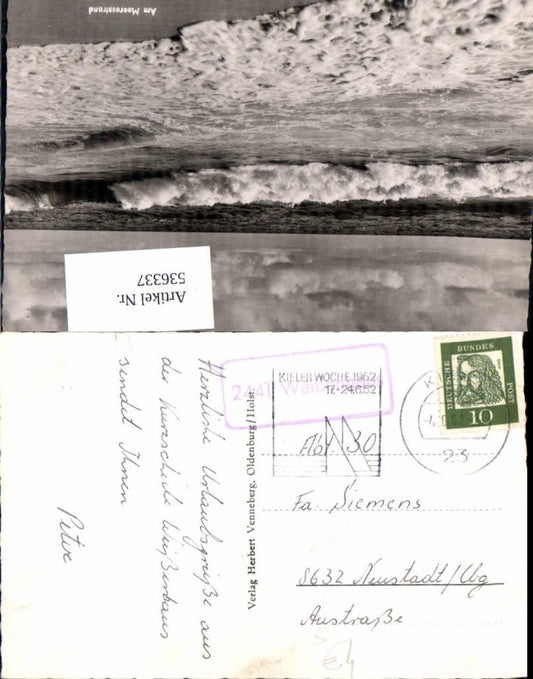 Am Meeresstrand
Artikel Nr.
536337
Herzliche Urlaubsgrüße aus
der Kurzschule Weißenhaus
sendet Ihnen
Peter
Verlag Herbert Venneberg, Oldenburg/Holst.
2441
KIELER WOCHE 1962
17.-24.6.62
DEUTSCHE BUNDES POST
10
23
Abt. 30
Fa. Siemens
8632 Neustadt/Cbg
Austraße